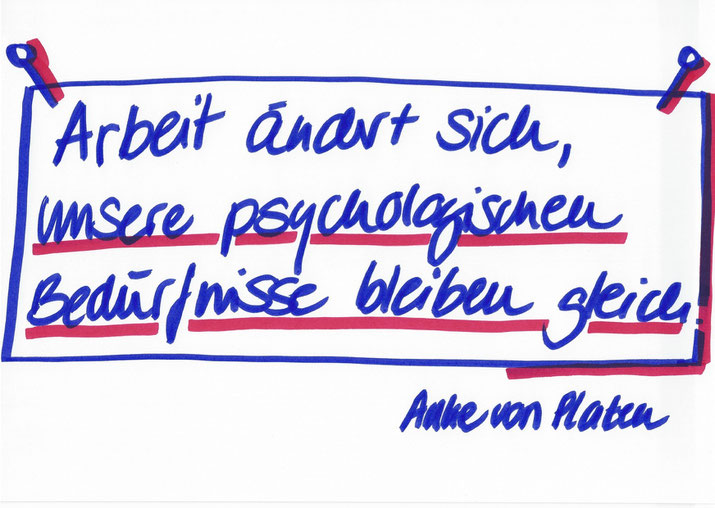 Arbeit ändert sich,
unsere psychologischen
Bedürfnisse bleiben gleich.
Anke von Platen